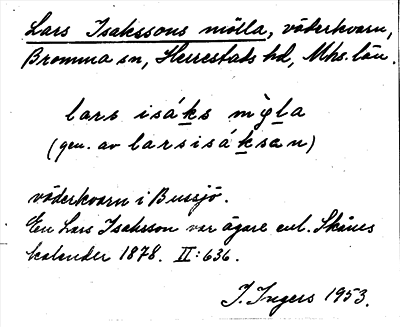 Lars Isakssons mölla, väderkvarn,
Bromma sn, Herrestads hd, Mhs. län.
lars isáks mỳla
(gen. av larsisáksan)
väderkvarn i Bussjö.
En Lars Isaksson var ägare enl. Skånes
kalender 1878. II:636.
I. Ingers 1953.